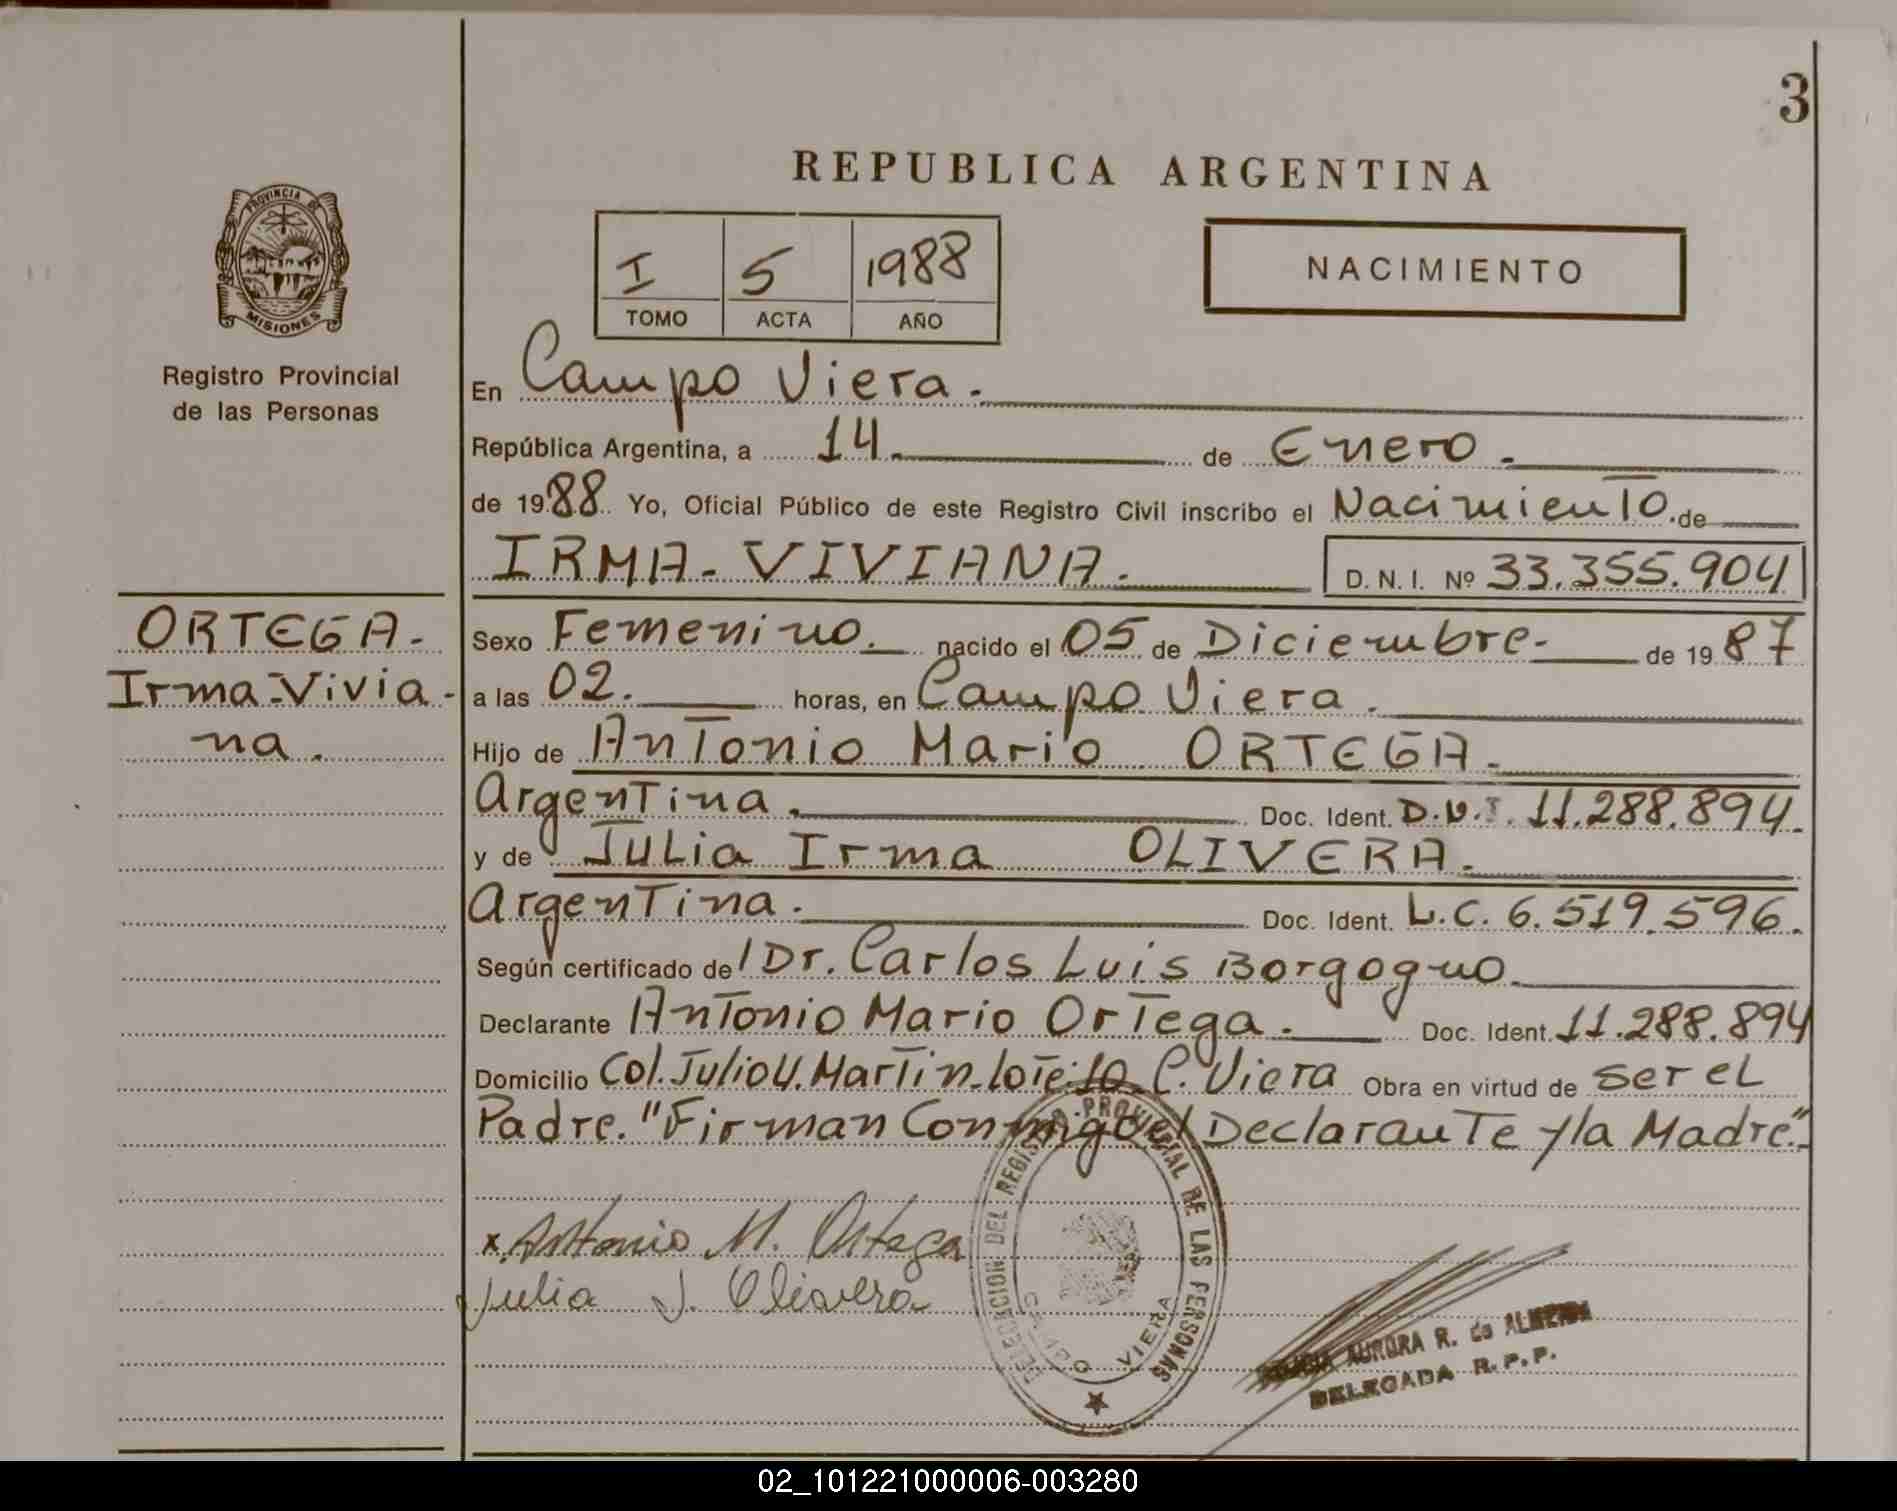 3
REPUBLICA ARGENTINA
PROVINCIA DE
MISIONES
Registro Provincial
de las Personas
I 5 1988
TOMO ACTA AÑO
NACIMIENTO
En Campo Viera.
República Argentina, a 14. de Enero.
de 1988 Yo, Oficial Público de este Registro Civil inscribo el Nacimiento.de
IRMA-VIVIANA. D. N. I. Nº 33.355.904
ORTEGA-
Irma-Vivia-
na.
Sexo Femenino. nacido el 05 de Diciembre- de 1987
a las 02. horas, en Campo Viera.
Hijo de Antonio Mario ORTEGA.
Argentina. Doc. Ident. D.N.I. 11.288.894.
y de Julia Irma OLIVERA.
Argentina. Doc. Ident. L.C. 6.519.596.
Según certificado de/ Dr. Carlos Luis Borgogno.
Declarante Antonio Mario Ortega. Doc. Ident. 11.288.894
Domicilio Col. Julio U. Martin-lote:10 C. Viera Obra en virtud de ser el
Padre. "Firman Conmigo el Declarante y la Madre".-
x. Antonio M. Ortega
Julia I. Olivera
DELEGACION DEL REGISTRO PROVINCIAL DE LAS PERSONAS
CAMPO VIERA
AURORA R. de ALMEIDA
DELEGADA R.P.P.
02_101221000006-003280